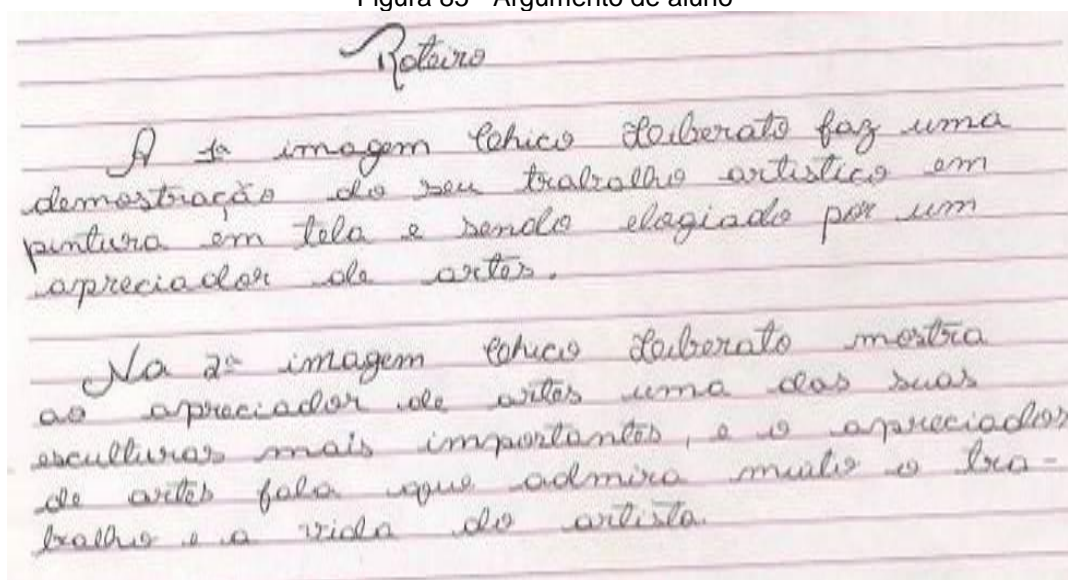 Figura 85 - Argumento de aluno
Roteiro
A 1ª imagem Chico Leiberato faz uma
demostração do seu trabalho artistico em
pintura em tela e sendo elogiado por um
apreciador de artes.
Na 2ª imagem Chico Leiberato mostra
ao apreciador de artes uma das suas
esculturas mais importantes, e o apreciador
de artes fala que admira muito o tra-
balho e a vida do artista.